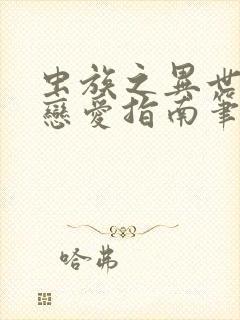 虫族之異世
戀愛指南筆
哈弗